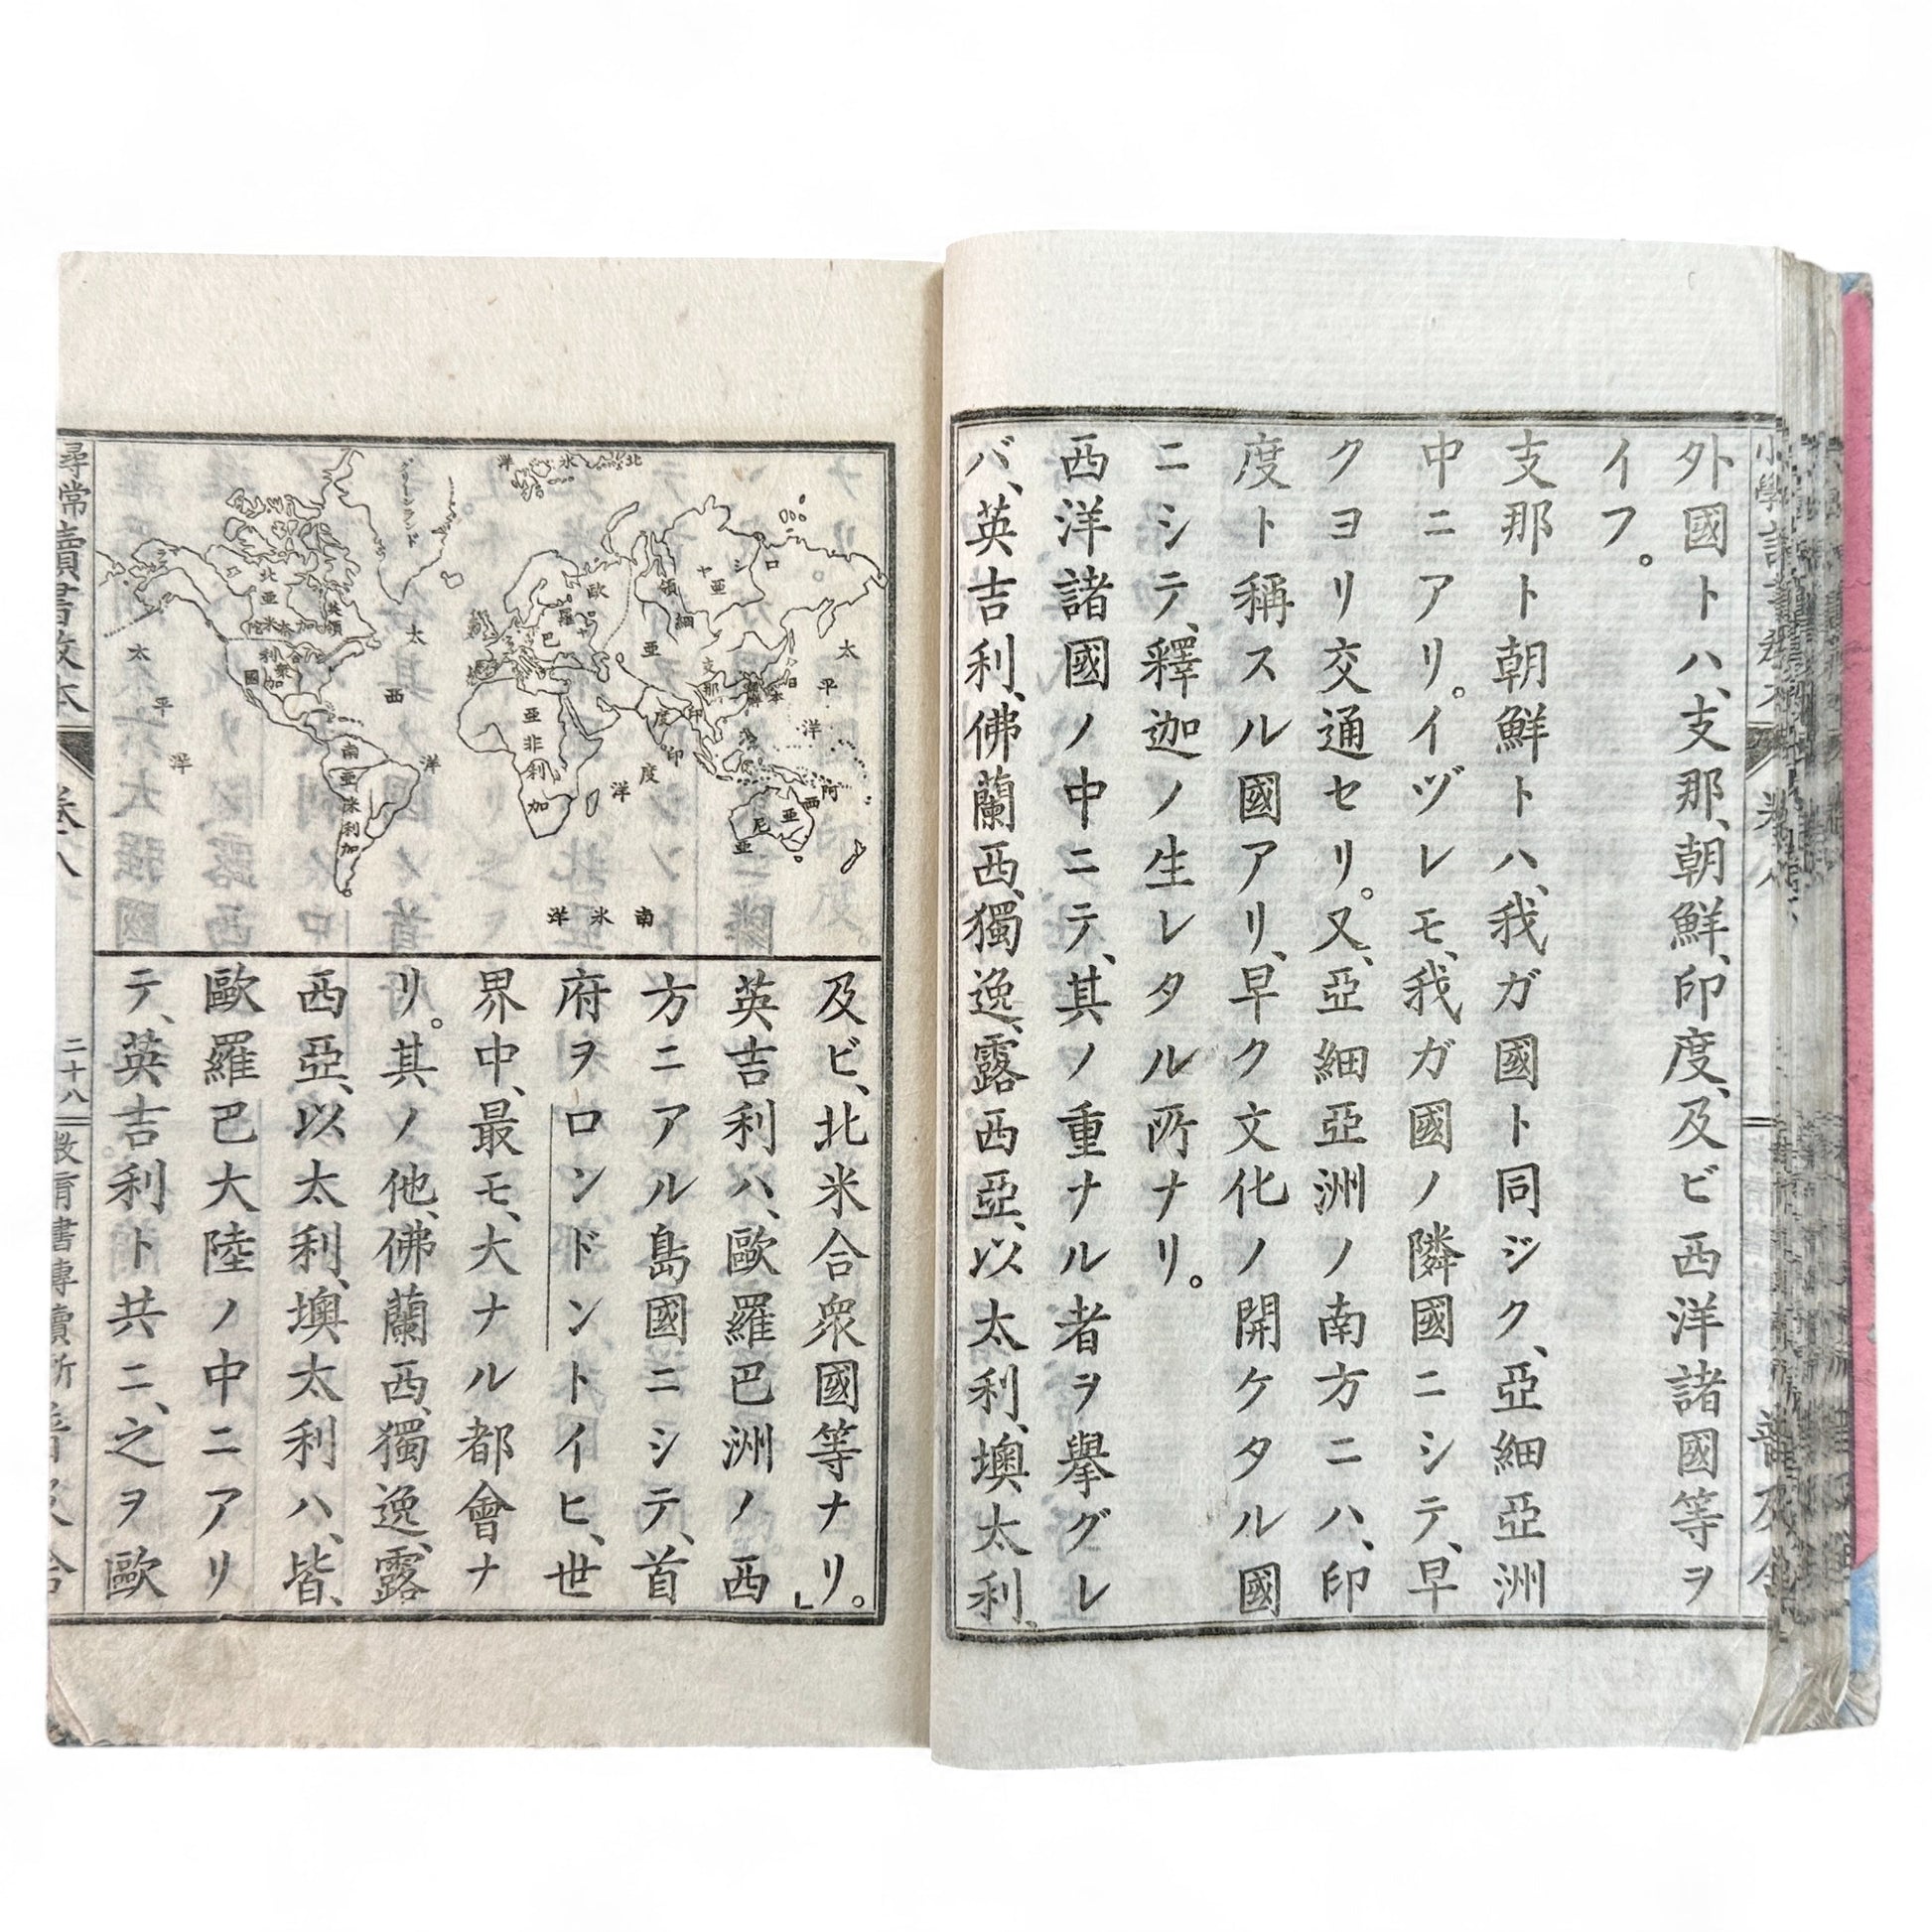 外國トハ、支那、朝鮮、印度、及ビ西洋諸國等ヲ
イフ。
支那ト朝鮮トハ、我ガ國ト同ジク、亞細亞洲
中ニアリ。イヅレモ、我ガ國ノ隣國ニシテ、早
クヨリ交通セリ。又、亞細亞洲ノ南方ニハ、印
度ト稱スル國アリ、早ク文化ノ開ケタル國
ニシテ、釋迦ノ生レタル所ナリ。
西洋諸國ノ中ニテ、其ノ重ナル者ヲ擧グレ
バ、英吉利、佛蘭西、獨逸、露西亞、以太利、墺太利、
北氷洋
グリーンランド
太平洋
西
太
洋
英領
北亞
利
加
合衆國
南亞米利加
歐
羅
巴
亞非利加
亞
細
亞
領
シ
ヤ
支那
日本
印度
印度洋
太平洋
阿西亞尼亞
南氷洋
及ビ、北米合衆國等ナリ。」
英吉利ハ、歐羅巴洲ノ西
方ニアル島國ニシテ、首
府ヲロンドントイヒ、世
界中、最モ、大ナル都會ナ
リ。其ノ他、佛蘭西、獨逸、露
西亞、以太利、墺太利ハ、皆、
歐羅巴大陸ノ中ニアリ
テ、英吉利ト共ニ、之ヲ歐
尋常讀書教本
卷八
二十八